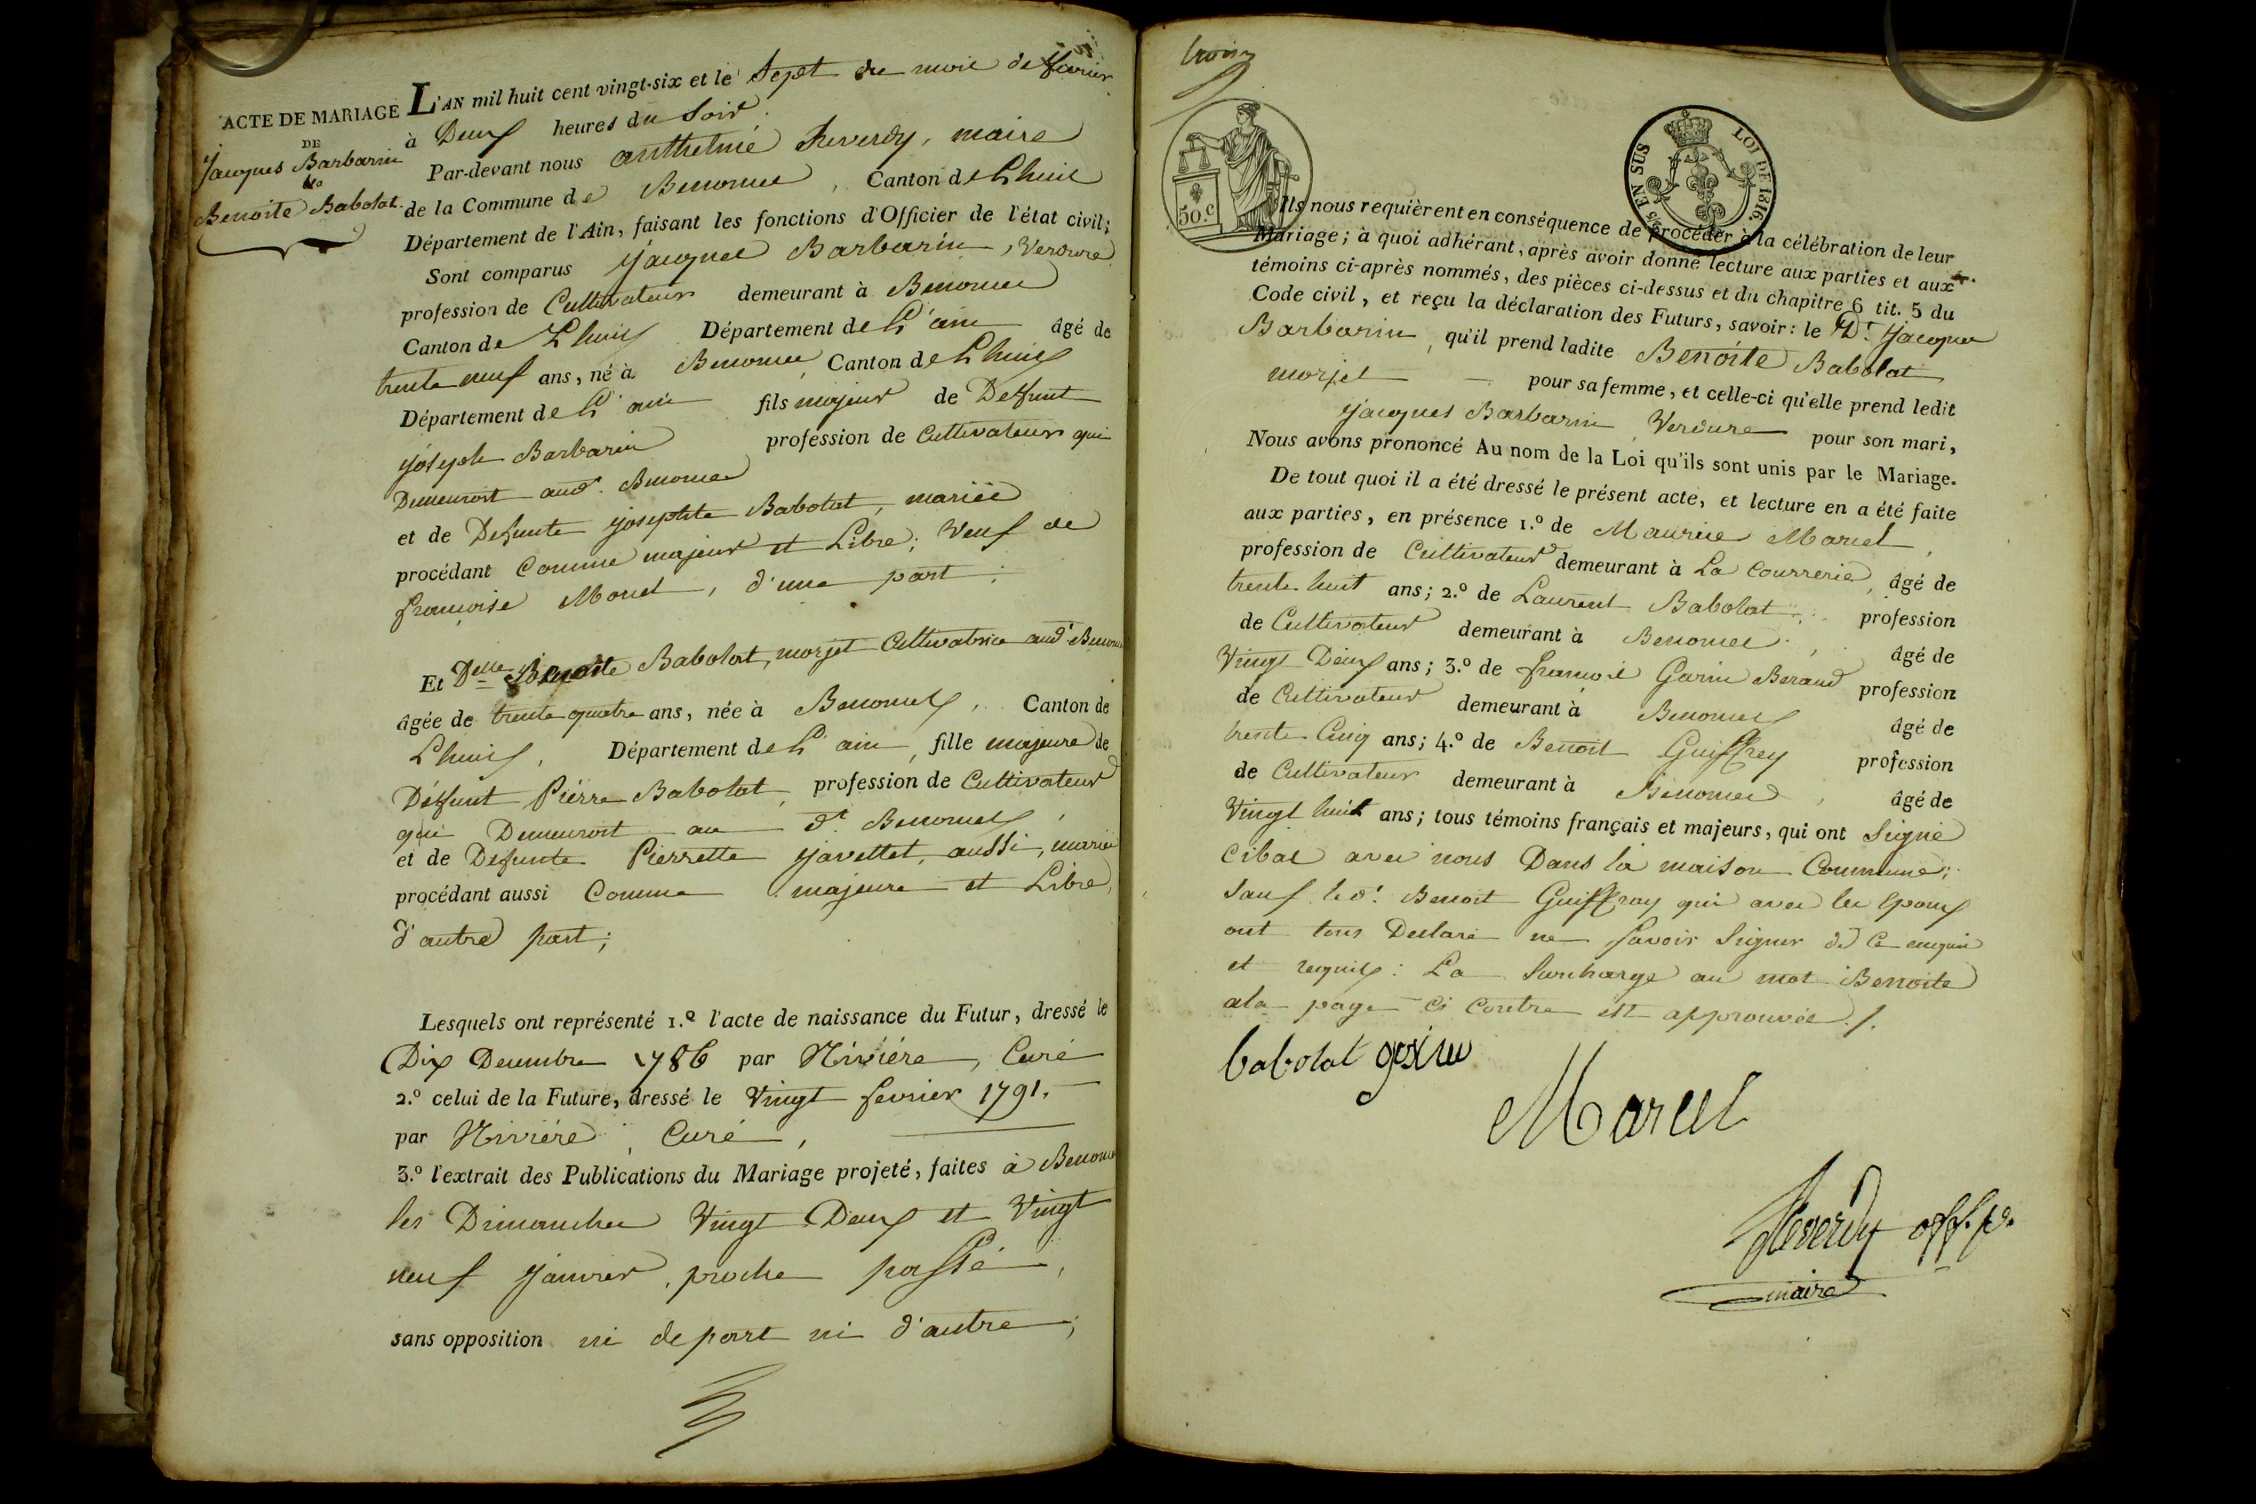 ACTE DE MARIAGE
DE
Jacques Barbarin
Benoite Babolat.
L'AN mil huit cent vingt-six et le Sept du mois de fevrier
à Deux heures du Soir
Par-devant nous anthelme Reverdy, maire
de la Commune de Benonce, Canton de Lhuis
Département de l'Ain, faisant les fonctions d'Officier de l'état civil;
Sont comparus Jacques Barbarin, Verdure
profession de Cultivateur demeurant à Benonce
Canton de Lhuis Département de L'ain âgé de
trente neuf ans, né à Benonce, Canton de Lhuis
Département de L'ain fils majeur de Defunt
joseph Barbarin profession de Cultivateur qui
Demeuroit aud. Benonce
et de Defunte josephte Babolat, mariée
procédant Comme majeur et Libre; Veuf de
françoise Morel, d'une part;
Et Delle Benoite Babolat, morjet Cultivatrice aud. Benonce
âgée de trente quatre ans, née à Benonce, Canton de
Lhuis, Département de L'ain, fille majeure de
Défunt Pierre Babolat, profession de Cultivateur
qui Demeuroit au dt. Benonce,
et de Defunte Pierrette javellet, aussi, mariée
procédant aussi Comme majeure et Libre,
d'autre part;
Lesquels ont représenté 1.º l'acte de naissance du Futur, dressé le
Dix Decembre 1786 par Rivière, Curé
2.º celui de la Future, dressé le Vingt fevrier 1791.
par Rivière, Curé,
3.º l'extrait des Publications du Mariage projeté, faites à Benonce
les Dimanches Vingt Deux et Vingt
neuf janvier, proche passé,
sans opposition ni de part ni d'autre;
50.c
EN SUS
LOI DE 1816.
Ils nous requièrent en conséquence de procéder à la célébration de leur
Mariage; à quoi adhérant, après avoir donné lecture aux parties et aux
témoins ci-après nommés, des pièces ci-dessus et du chapitre 6 tit. 5 du
Code civil, et reçu la déclaration des Futurs, savoir: le Dt. Jacques
Barbarin, qu'il prend ladite Benoite Babolat
morjet pour sa femme, et celle-ci qu'elle prend ledit
jacques Barbarin Verdure pour son mari,
Nous avons prononcé Au nom de la Loi qu'ils sont unis par le Mariage.
De tout quoi il a été dressé le présent acte, et lecture en a été faite
aux parties, en présence 1.º de Maurice Marcel,
profession de Cultivateur demeurant à La Courrerie, âgé de
trente huit ans; 2.º de Laurent Babolat profession
de Cultivateur demeurant à Benonce, âgé de
Vingt Deux ans; 3.º de françois Garin Beraud profession
de Cultivateur demeurant à Benonce âgé de
trente Cinq ans; 4.º de Benoit Guiffrey profession
de Cultivateur demeurant à Benonce, âgé de
Vingt huit ans; tous témoins français et majeurs, qui ont Signé
avec nous Dans la maison Commune;
Sauf le dt. Benoit Guiffray qui avec les Epoux
ont tous Declaré ne Savoir Signer de Ce enquis
et requis: La Surcharge au mot Benoite
ala page Ci Contre est approuvée ./.
babolat
Marcel
Reverdy off. p.
maire